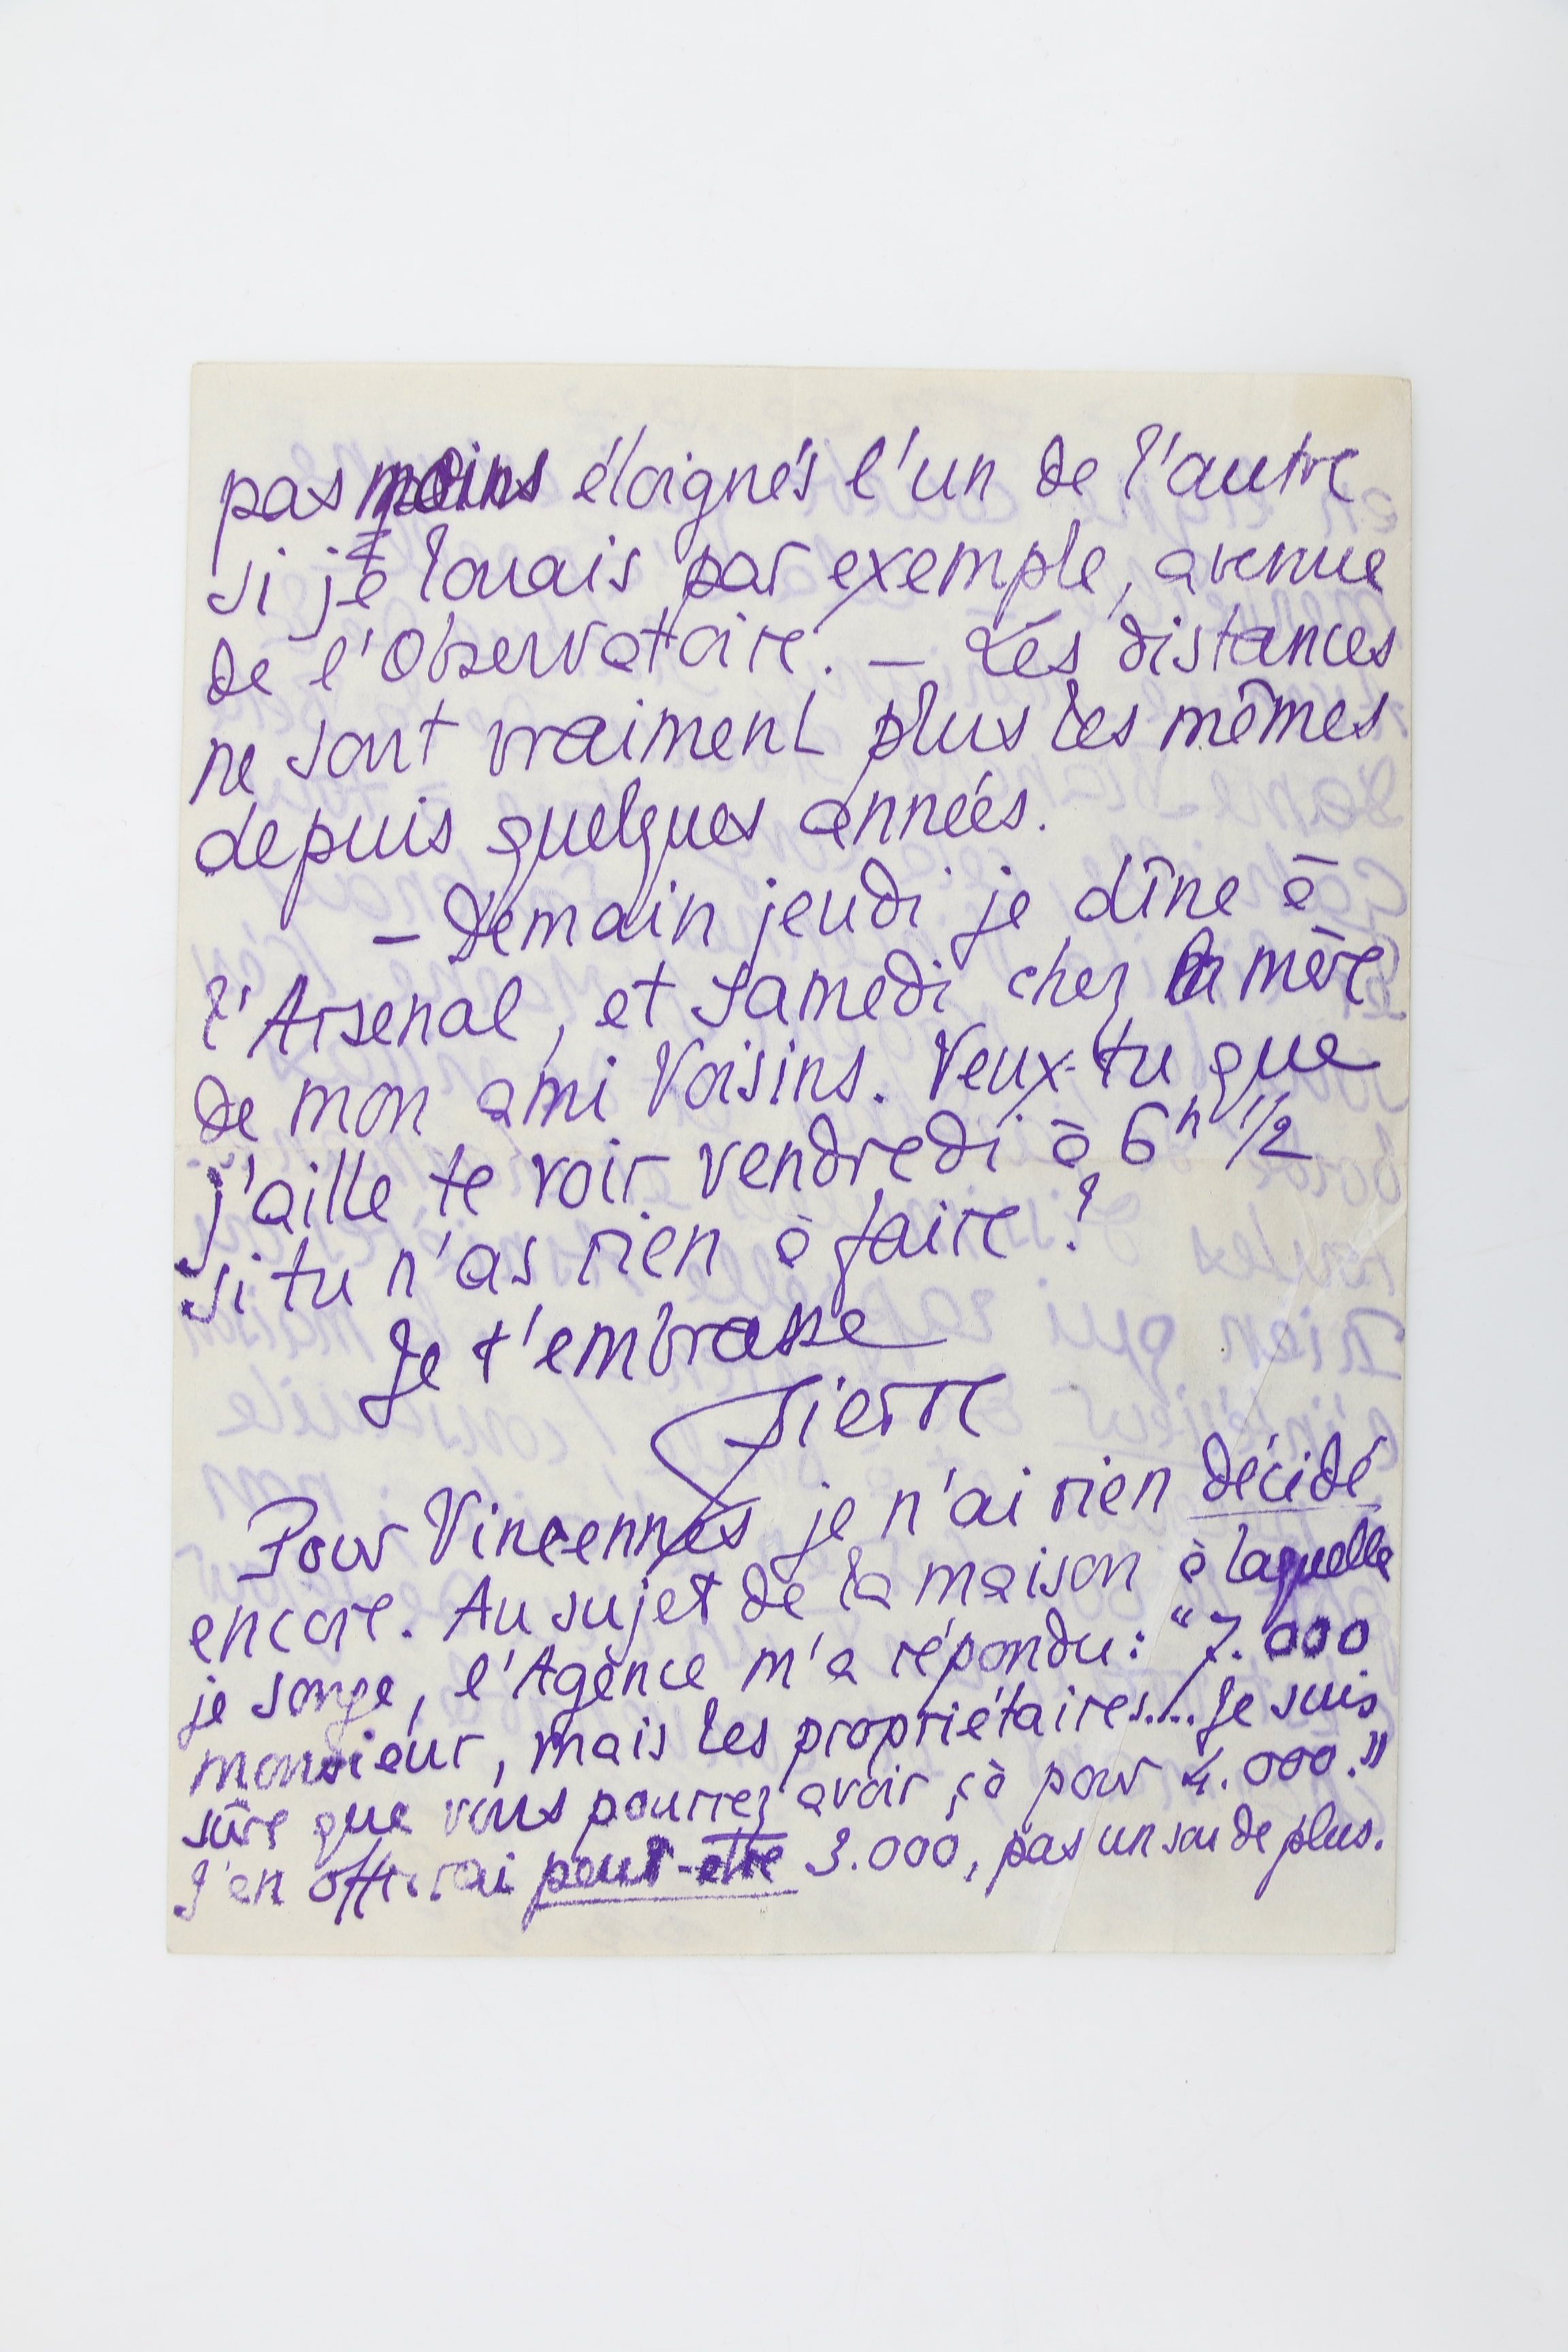 pas moins éloignés l'un de l'autre
si je louais, par exemple, avenue
de l'Observatoire. — Les distances
ne sont vraiment plus les mêmes
depuis quelques années.
— Demain jeudi je dîne à
l'Arsenal, et Samedi chez la mère
de mon ami Voisins. Veux-tu que
j'aille te voir vendredi à 6h 1/2
si tu n'as rien à faire ?
Je t'embrasse
Pierre
Pour Vincennes je n'ai rien décidé
encore. Au sujet de la maison à laquelle
je songe, l'Agence m'a répondu : "7.000
monsieur, mais les propriétaires.... Je suis
sûre que vous pourrez avoir çà pour 4.000."
J'en offrirai peut-être 3.000, pas un sou de plus.